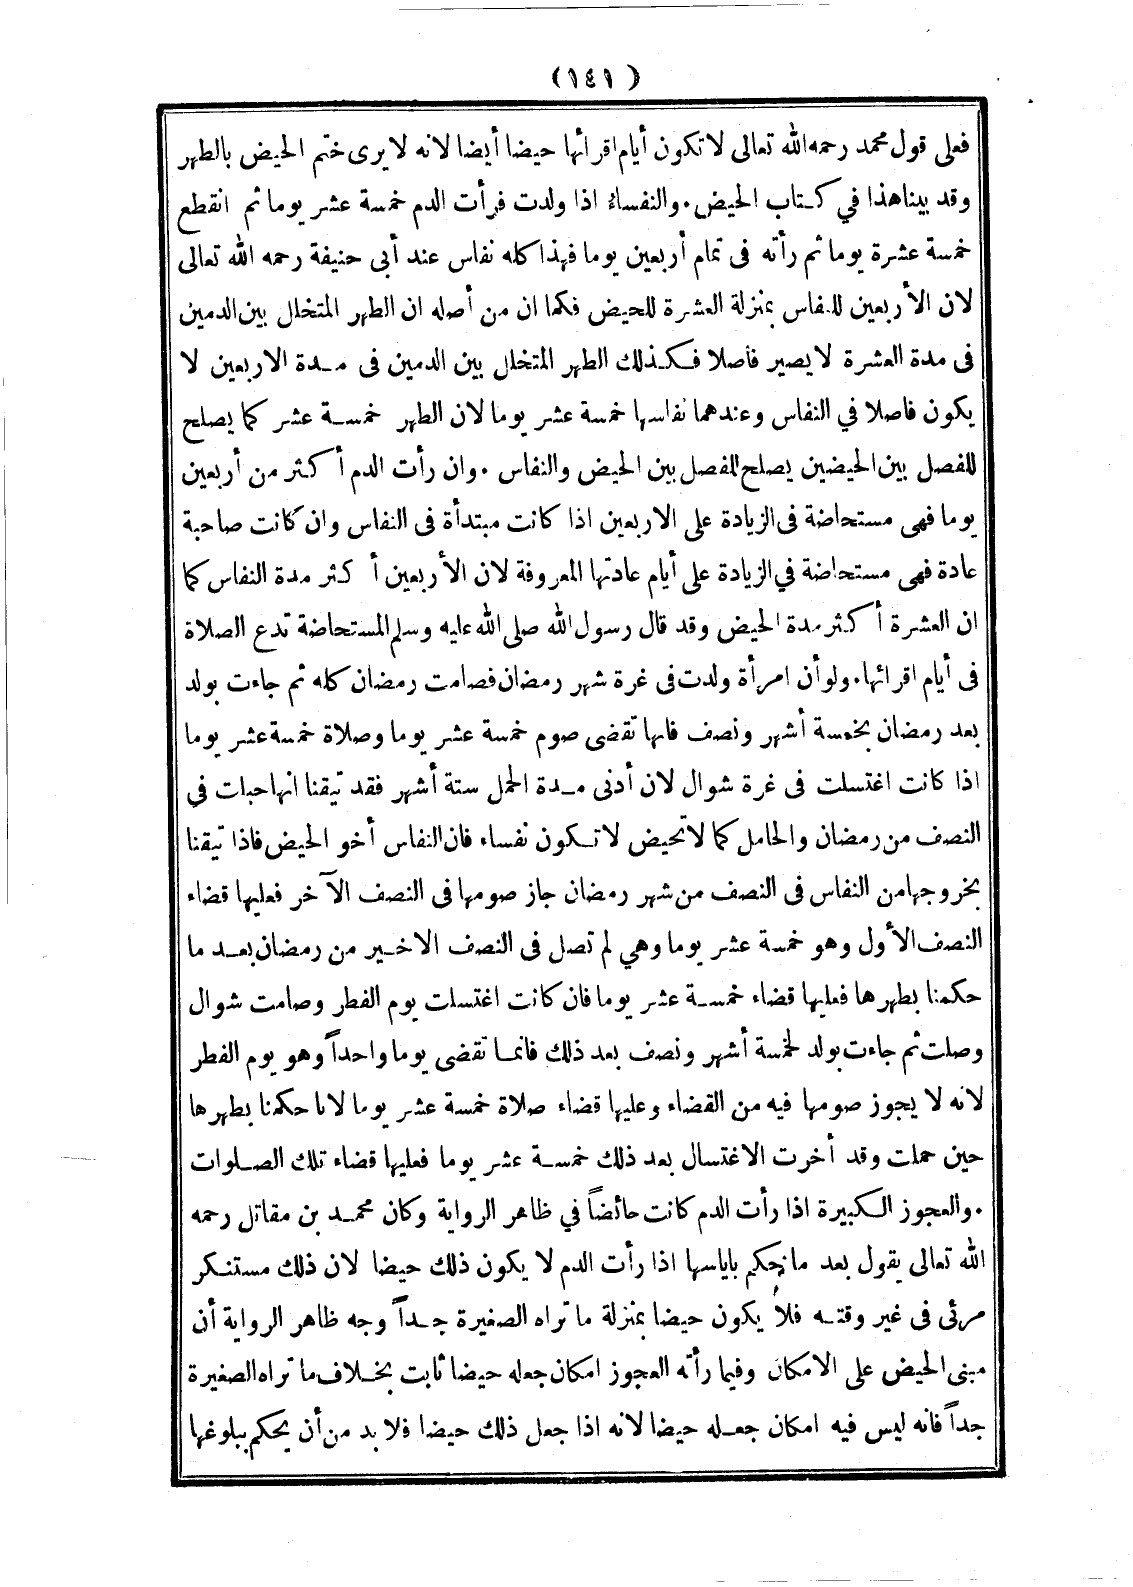 (١٤١)
فعلى قول محمد رحمه الله تعالى لا تكون أيام اقرائها حيضا أيضا لانه لا يرى ختم الحيض بالطهر
وقد بينا هذا في كتاب الحيض . والنفساء اذا ولدت فرأت الدم خمسة عشر يوما ثم انقطع
خمسة عشرة يوما ثم رأته فى تمام أربعين يوما فهذا كله نفاس عند أبى حنيفة رحمه الله تعالى
لان الأربعين للنفاس بمنزلة العشرة للحيض فكما ان من أصله ان الطهر المتخلل بين الدمين
فى مدة العشرة لا يصير فاصلا فكذلك الطهر المتخلل بين الدمين فى مدة الاربعين لا
يكون فاصلا في النفاس وعندهما نفاسها خمسة عشر يوما لان الطهر خمسة عشر كما يصلح
للفصل بين الحيضين يصلح للفصل بين الحيض والنفاس . وان رأت الدم أكثر من أربعين
يوما فهى مستحاضة فى الزيادة على الاربعين اذا كانت مبتدأة فى النفاس وان كانت صاحبة
عادة فهى مستحاضة في الزيادة على أيام عادتها المعروفة لان الأربعين أكثر مدة النفاس كما
ان العشرة أكثر مدة الحيض وقد قال رسول الله صلى الله عليه وسلم المستحاضة تدع الصلاة
فى أيام اقرائها . ولو أن امرأة ولدت فى غرة شهر رمضان فصامت رمضان كله ثم جاءت بولد
بعد رمضان بخمسة أشهر ونصف فانها تقضى صوم خمسة عشر يوما وصلاة خمسة عشر يوما
اذا كانت اغتسلت فى غرة شوال لان أدنى مدة الحمل ستة أشهر فقد تيقنا انها حبلت في
النصف من رمضان والحامل كما لا تحيض لا تكون نفساء فان النفاس أخو الحيض فاذا تيقنا
بخروجها من النفاس فى النصف من شهر رمضان جاز صومها فى النصف الآخر فعليها قضاء
النصف الأول وهو خمسة عشر يوما وهي لم تصل فى النصف الاخير من رمضان بعد ما
حكمنا بطهرها فعليها قضاء خمسة عشر يوما فان كانت اغتسلت يوم الفطر وصامت شوال
وصلت ثم جاءت بولد لخمسة أشهر ونصف بعد ذلك فانما تقضى يوما واحداً وهو يوم الفطر
لانه لا يجوز صومها فيه من القضاء وعليها قضاء صلاة خمسة عشر يوما لانا حكمنا بطهرها
حين حملت وقد أخرت الاغتسال بعد ذلك خمسة عشر يوما فعليها قضاء تلك الصلوات
. والعجوز الكبيرة اذا رأت الدم كانت حائضاً في ظاهر الرواية وكان محمد بن مقاتل رحمه
الله تعالى يقول بعد ما يحكم باياسها اذا رأت الدم لا يكون ذلك حيضا لان ذلك مستنكر
مرئى فى غير وقته فلا يكون حيضا بمنزلة ما تراه الصغيرة جداً وجه ظاهر الرواية أن
مبنى الحيض على الامكان وفيما رأته العجوز امكان جعله حيضا ثابت بخلاف ما تراه الصغيرة
جداً فانه ليس فيه امكان جعله حيضا لانه اذا جعل ذلك حيضا فلا بد من أن يحكم ببلوغها